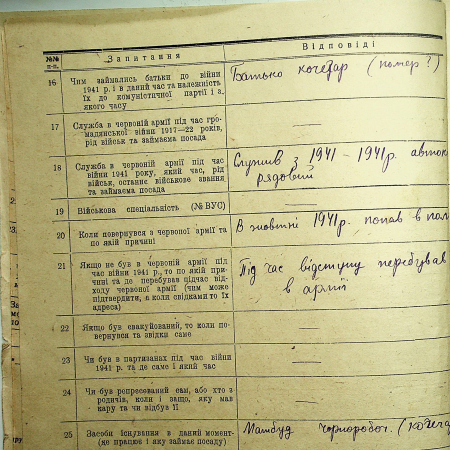 №№ п.п.
Запитання
Відповіді
16
Чим займались батьки до війни
1941 р. і в даний час та належність
їх до комуністичної партії і з
якого часу
Батько кочегар (помер?)
17
Служба в червоній армії під час гро-
мадянської війни 1917—22 років,
рід військ та займаєма посада
18
Служба в червоній армії під час
війни 1941 року, який час, рід
військ, останнє військове звання
та займаєма посада
Служив з 1941 – 1941р. авток
рядовий
19
Військова спеціальність (№ ВУС)
20
Коли повернувся з червоної армії та
по якій причині
В жовтні 1941р. попав в пол
21
Якщо не був в червоній армії під
час війни 1941 р., то по якій при-
чині та де перебував підчас від-
ходу червоної армії (чим може
підтвердити, а коли свідками то їх
адреса)
Під час відступу перебував
в армії
22
Якщо був евакуйований, то коли по-
вернувся та звідки саме
23
Чи був в партизанах під час війни
1941 р. та де саме і який час
24
Чи був репресований сам, або хто з
родичів, коли і защо, яку мав
кару та чи відбув її
25
Засоби існування в даний момент-
(де працює і яку займає посаду)
чорнороб. (кочега